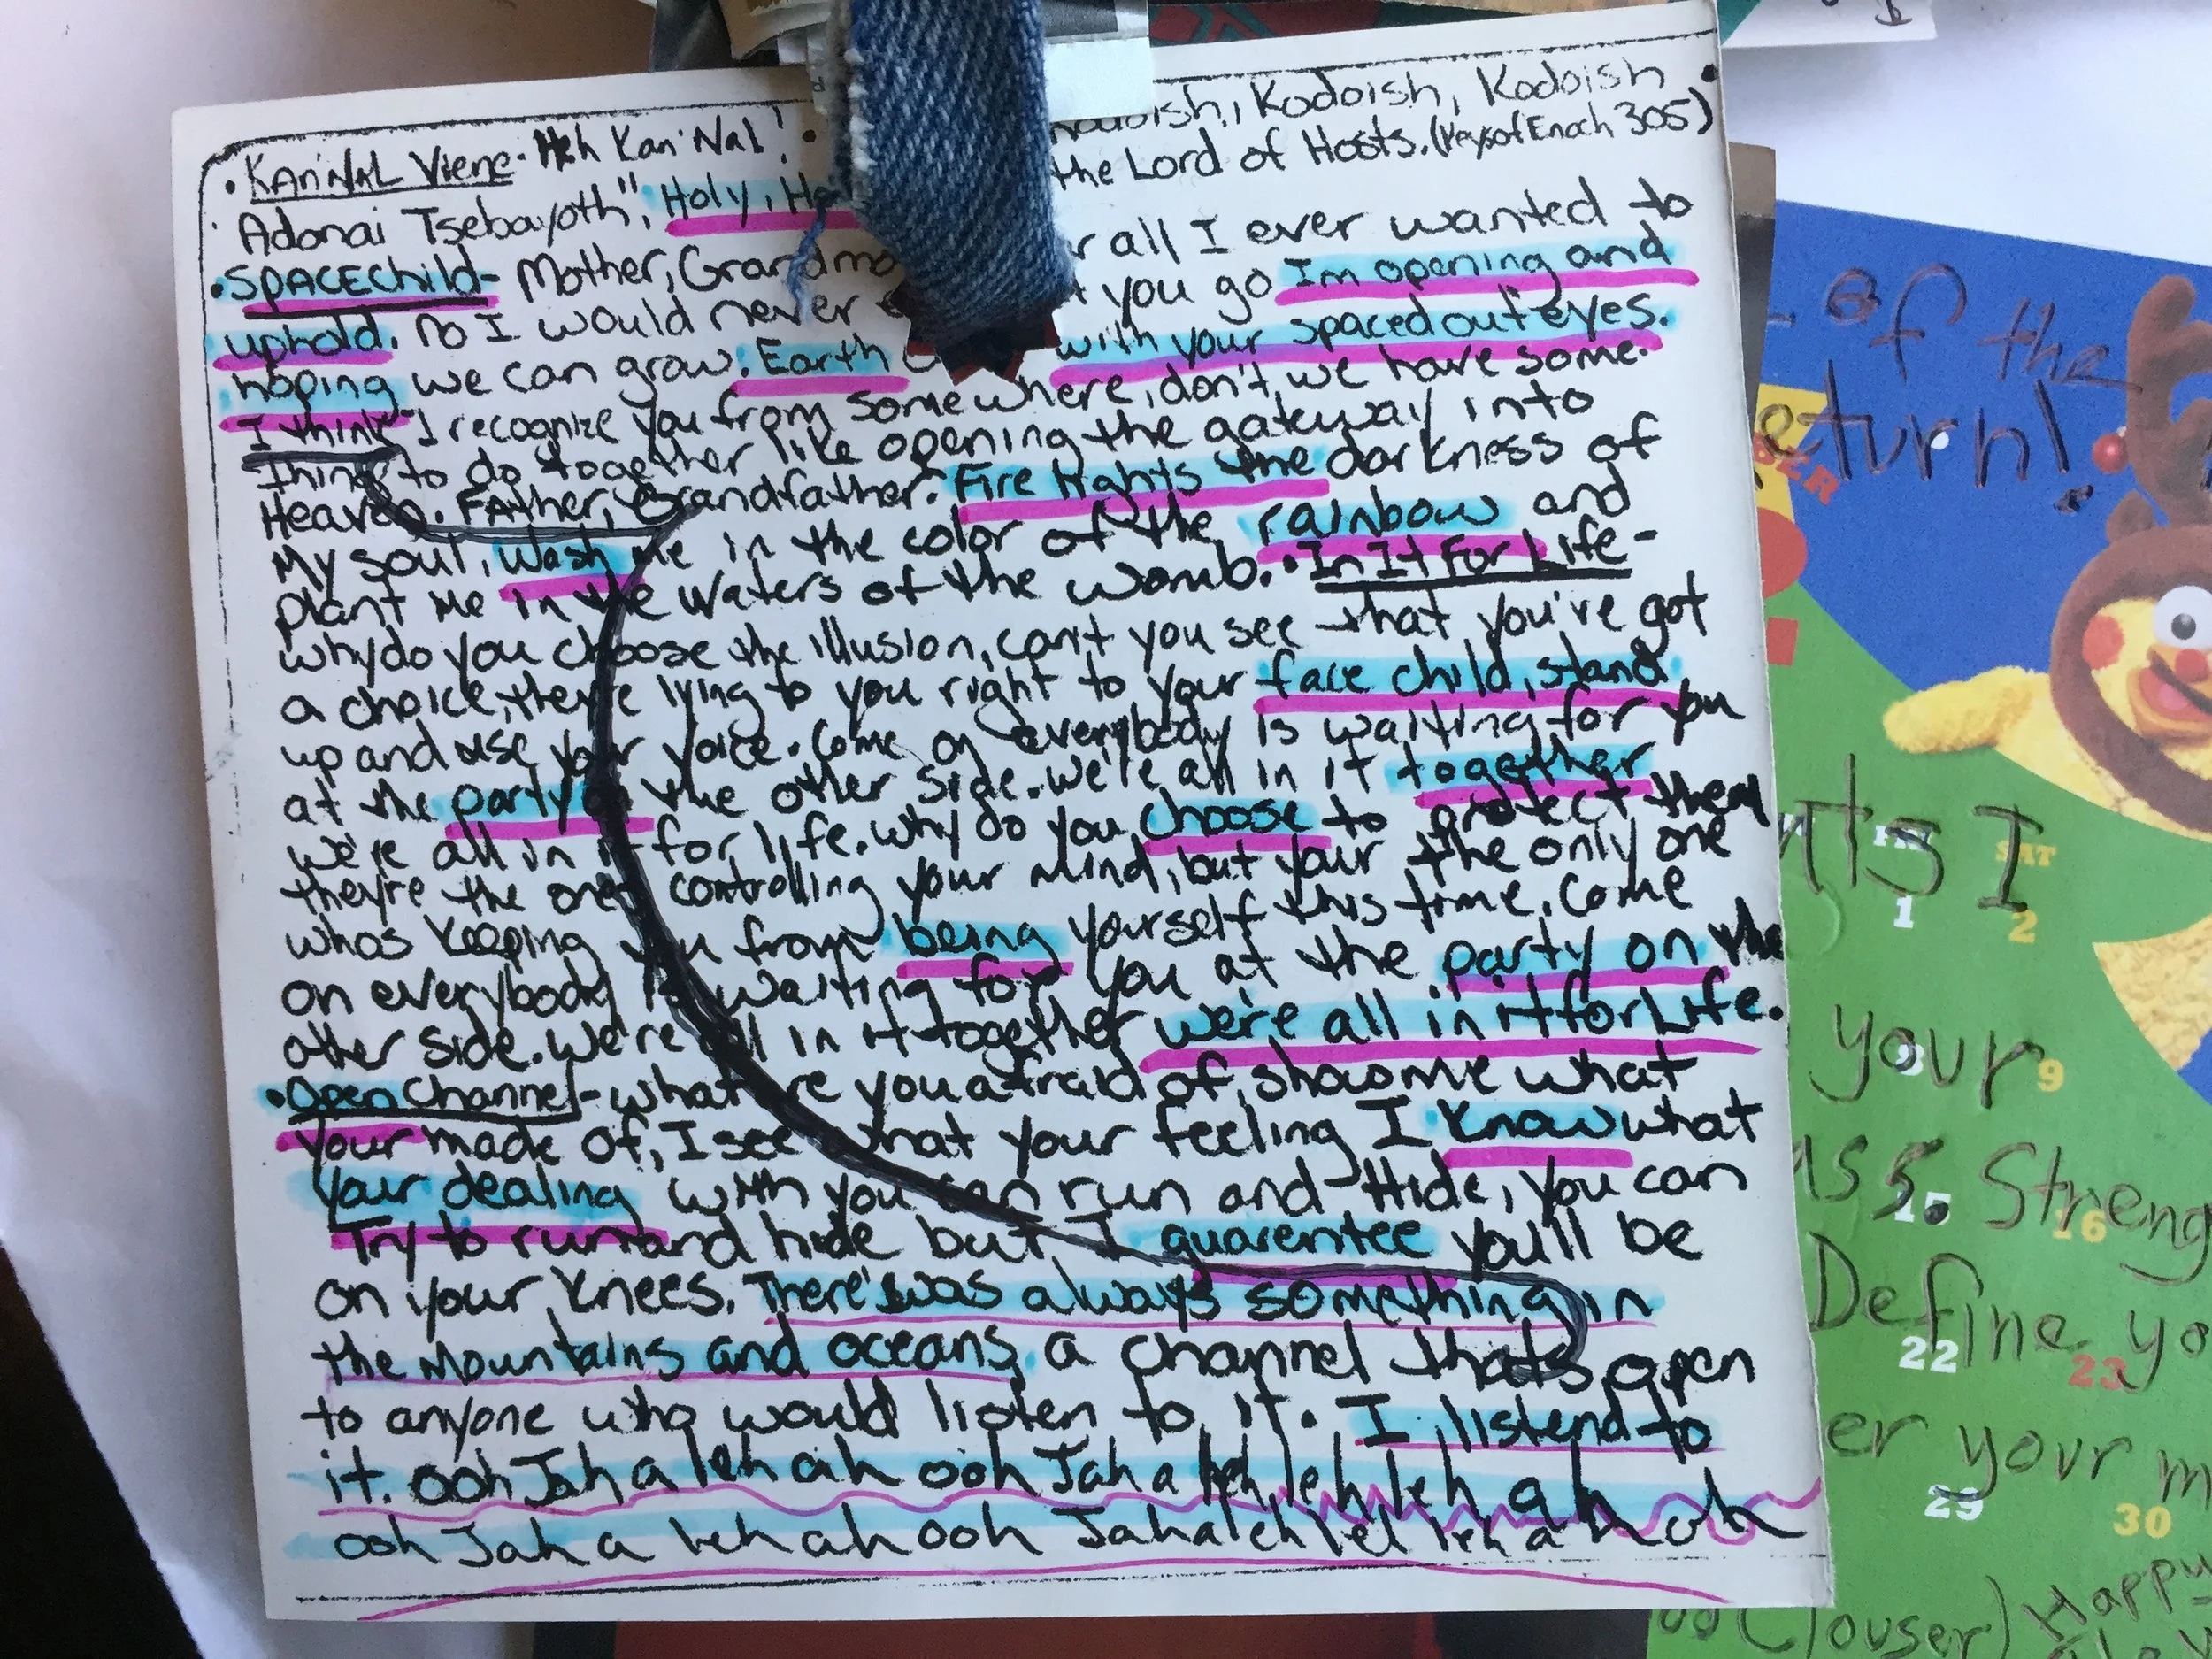 • KAN'NAL Viene - Heh Kan'Nal! • Kodoish, Kodoish, Kodoish
Adonai Tsebayoth", Holy, the Lord of Hosts. (Keys of Enoch 305)
• SPACEChild - Mother, all I ever wanted to
uphold. no I would never you go Im opening and
hoping we can grow. Earth with your spaced out eyes.
I think I recognize you from somewhere, don't we have some
things to do together like opening the gateway into
Heaven. FAther, Grandfather. Fire lights the darkness of
My soul, wash me in the color of the rainbow and
plant me in the waters of the womb. • In It For Life -
why do you choose the illusion, can't you see that you've got
a choice, they're lying to you right to your face child, stand
up and use your voice. Come on everybody is waiting for you
at the party on the other side. We're all in it together
we're all in it for life. why do you choose to protect them
they're the ones controlling your mind, but your the only one
whos keeping you from being yourself this time. Come
on everybody is waiting for you at the party on the
other side. We're all in it together we're all in it for Life.
• Open Channel - what are you afraid of, show me what
your made of, I see that your feeling I know what
your dealing with you can run and Hide, you can
Try to run and hide but I guarentee you'll be
on your knees. There's was always something in
the Mountains and oceans, a channel thats open
to anyone who would listen to it. I listend to
it. ooh Jah a leh ah ooh Jah a leh leh leh ah oh
ooh Jah a leh ah ooh Jah a leh leh leh a h oh
of the
eturn!
nts I
SAT
1 2
your
8 9
ass. Streng
15 16
Define yo
22 23
er your m
29 30
Clouser) Happy